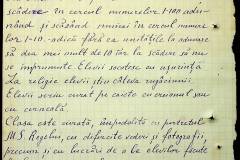 scădere în cercul numerelor 1-100 adu-
nând și scăzând numai în cercul nume-
relor 1-10 adică fără ca unitățile la adunare
să dea mai mult de 10 iar la scădere să nu
se împrumute. Elevii socotesc cu ușurință.
La religie elevii știu câteva rugăciuni.
Elevii scriu curat pe caete cu creionul sau
cu cerneală.
Clasa este curată, împodobită cu portretul
M.S. Regelui, cu diferite vederi și fotografii,
precum și cu lucrări de a le elevilor facute